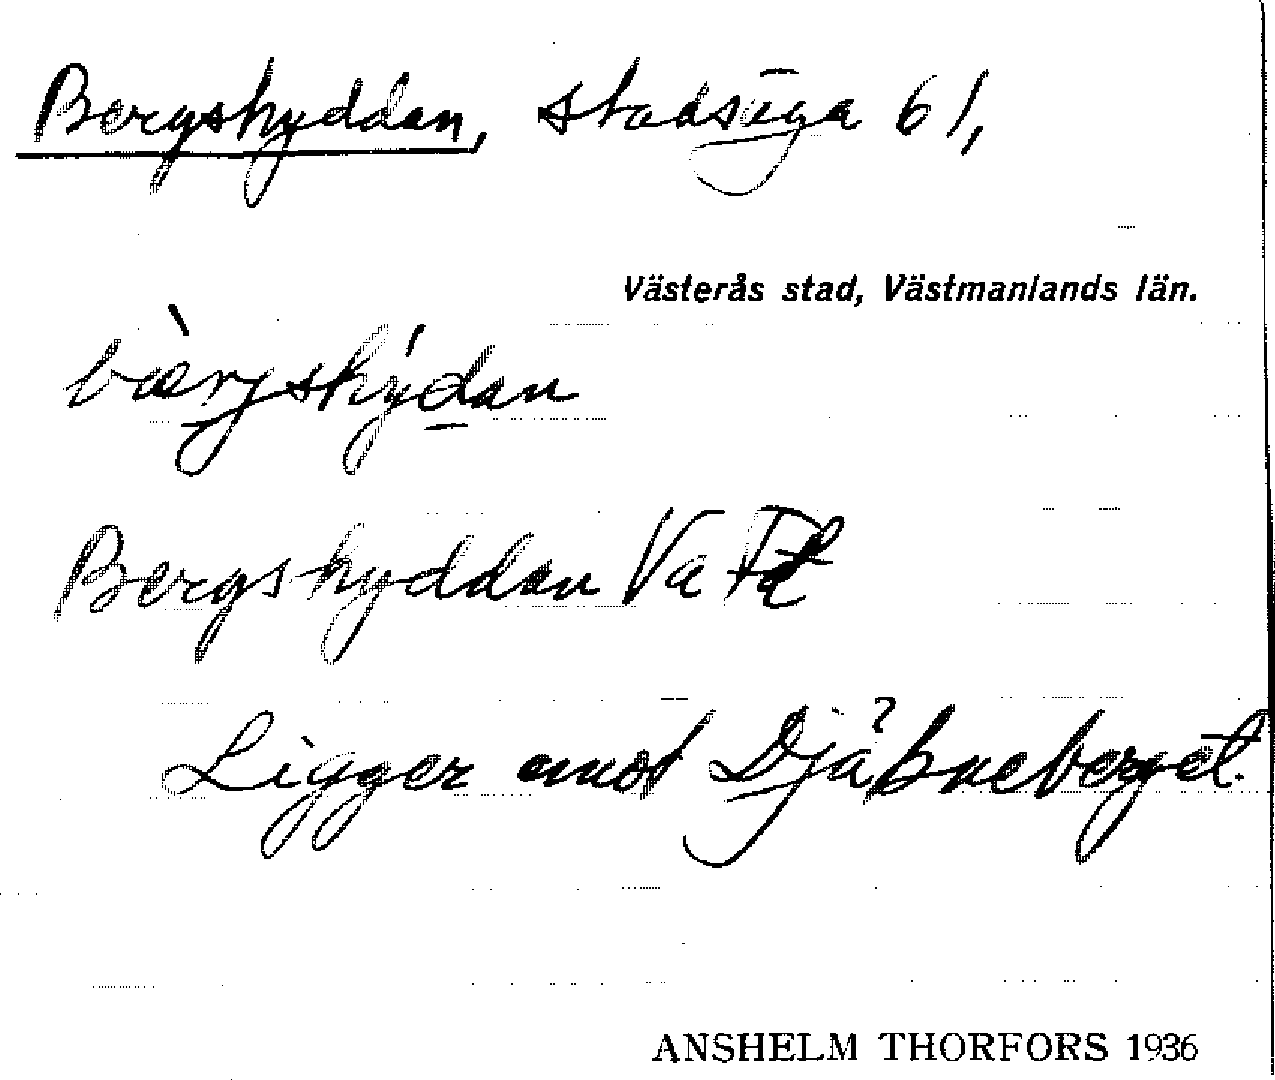 Bergshyddan, stadsäga 61,
Västerås stad, Västmanlands län.
bærjshýdan
Bergshyddan Va
Ligger emot Djäkneberget.
ANSHELM THORFORS 1936